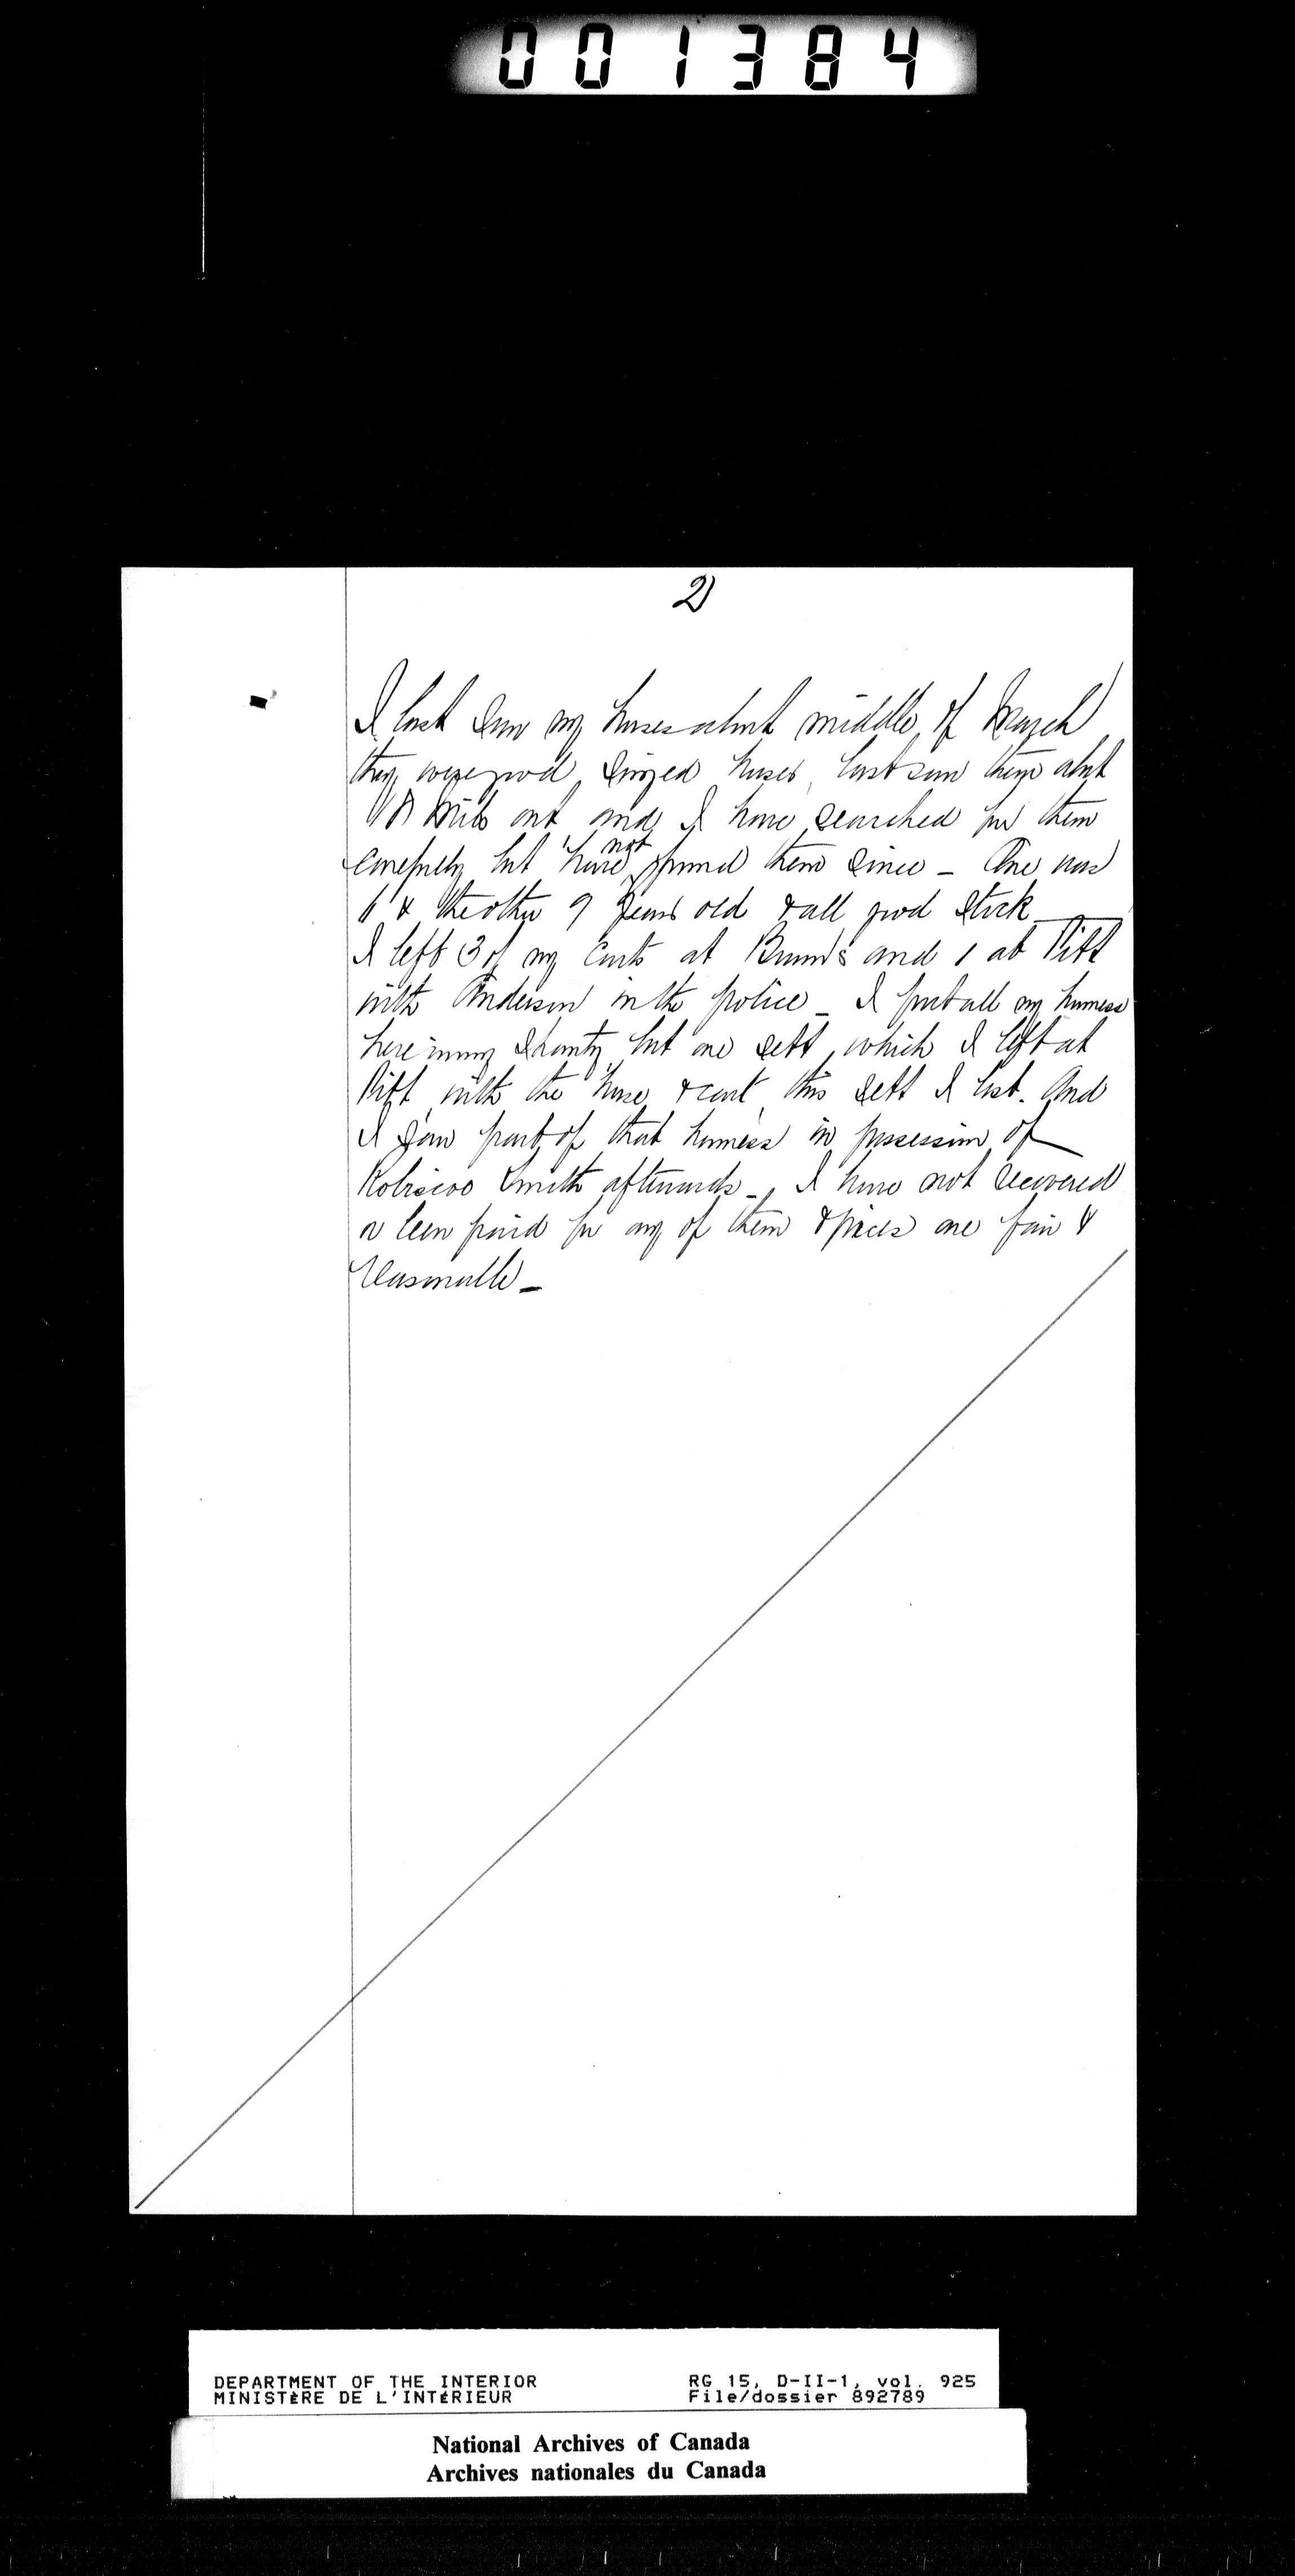 001384
2)
I last saw my horses about middle of March
they were good sized horses, last saw them about
miles out and I have searched for them
carefully but have not found them since – One was
6 & the other 9 years old & all good stock
I left 3 of my carts at and 1 at Pitt
with Anderson in the police – I put all my harness
here in my shanty but one sett, which I left at
Pitt, with the horse & cart, this sett I lost. And
I saw part of that harness in possession of
Smith afterwards –, I have not recovered
or been paid for any of them & prices are fair &
reasonable –
DEPARTMENT OF THE INTERIOR RG 15, D-II-1, vol. 925
MINISTÈRE DE L'INTÉRIEUR File/dossier 892789
National Archives of Canada
Archives nationales du Canada